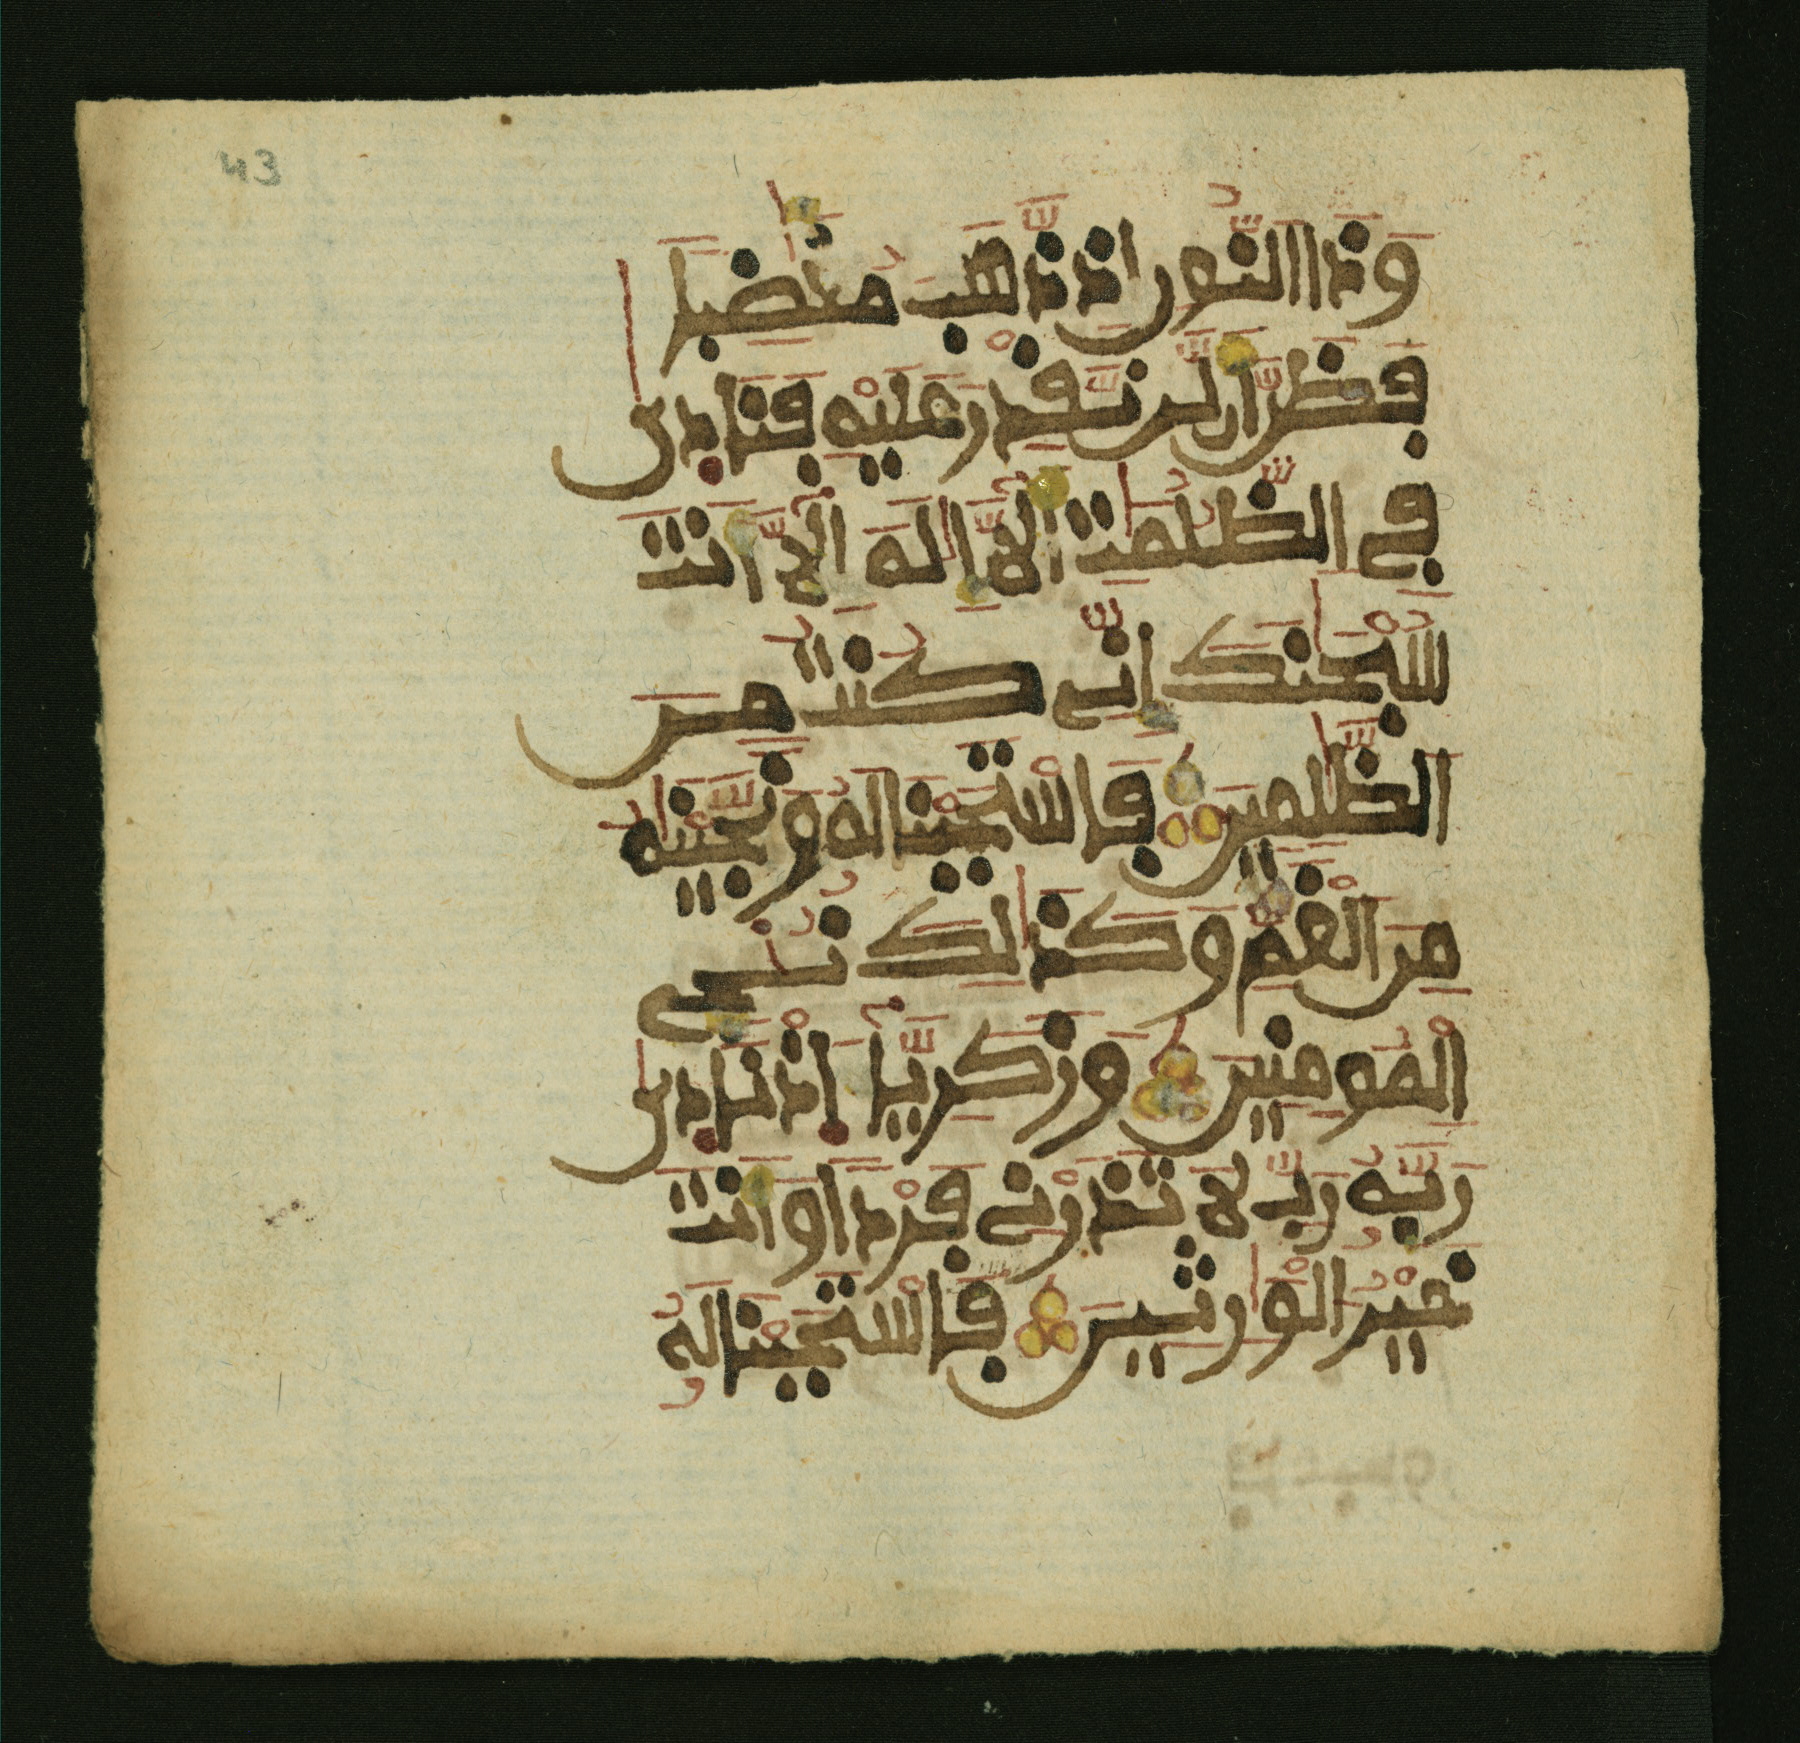 43
وَذَا النُّونِ إِذ ذَّهَبَ مُغَٰضِباٗ
فَظَنَّ أَن لَّن نَّقْدِرَ عَلَيْهِ فَنَادٜىٰ
فِي الظُّلُمَٰتِ أَن لَّآ إِلَٰهَ إِلَّآ أَنتَ
سُبْحَٰنَكَ إِنِّي كُنتُ مِنَ
الظَّٰلِمِينَ فَاسْتَجَبْنَا لَهُۥ وَنَجَّيْنَٰهُ
مِنَ الْغَمِّ وَكَذَٰلِكَ نُۨجِي
الْمُومِنِينَ وَزَكَرِيَّآءَ اٜ۪ذْ نَادٜىٰ
رَبَّهُۥ رَبِّ لَا تَذَرْنِي فَرْداٗ وَأَنتَ
خَيْرُ الْوَٰرِثِينَ فَاسْتَجَبْنَا لَهُۥ